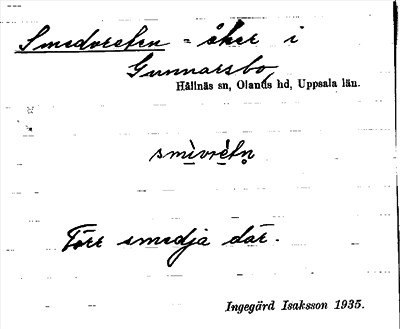 Smedvreten = åker i
Gunnarsbo,
Hållnäs sn, Olands hd, Uppsala län.
smìvrètn̥
Förr smedja där.
Ingegärd Isaksson 1935.